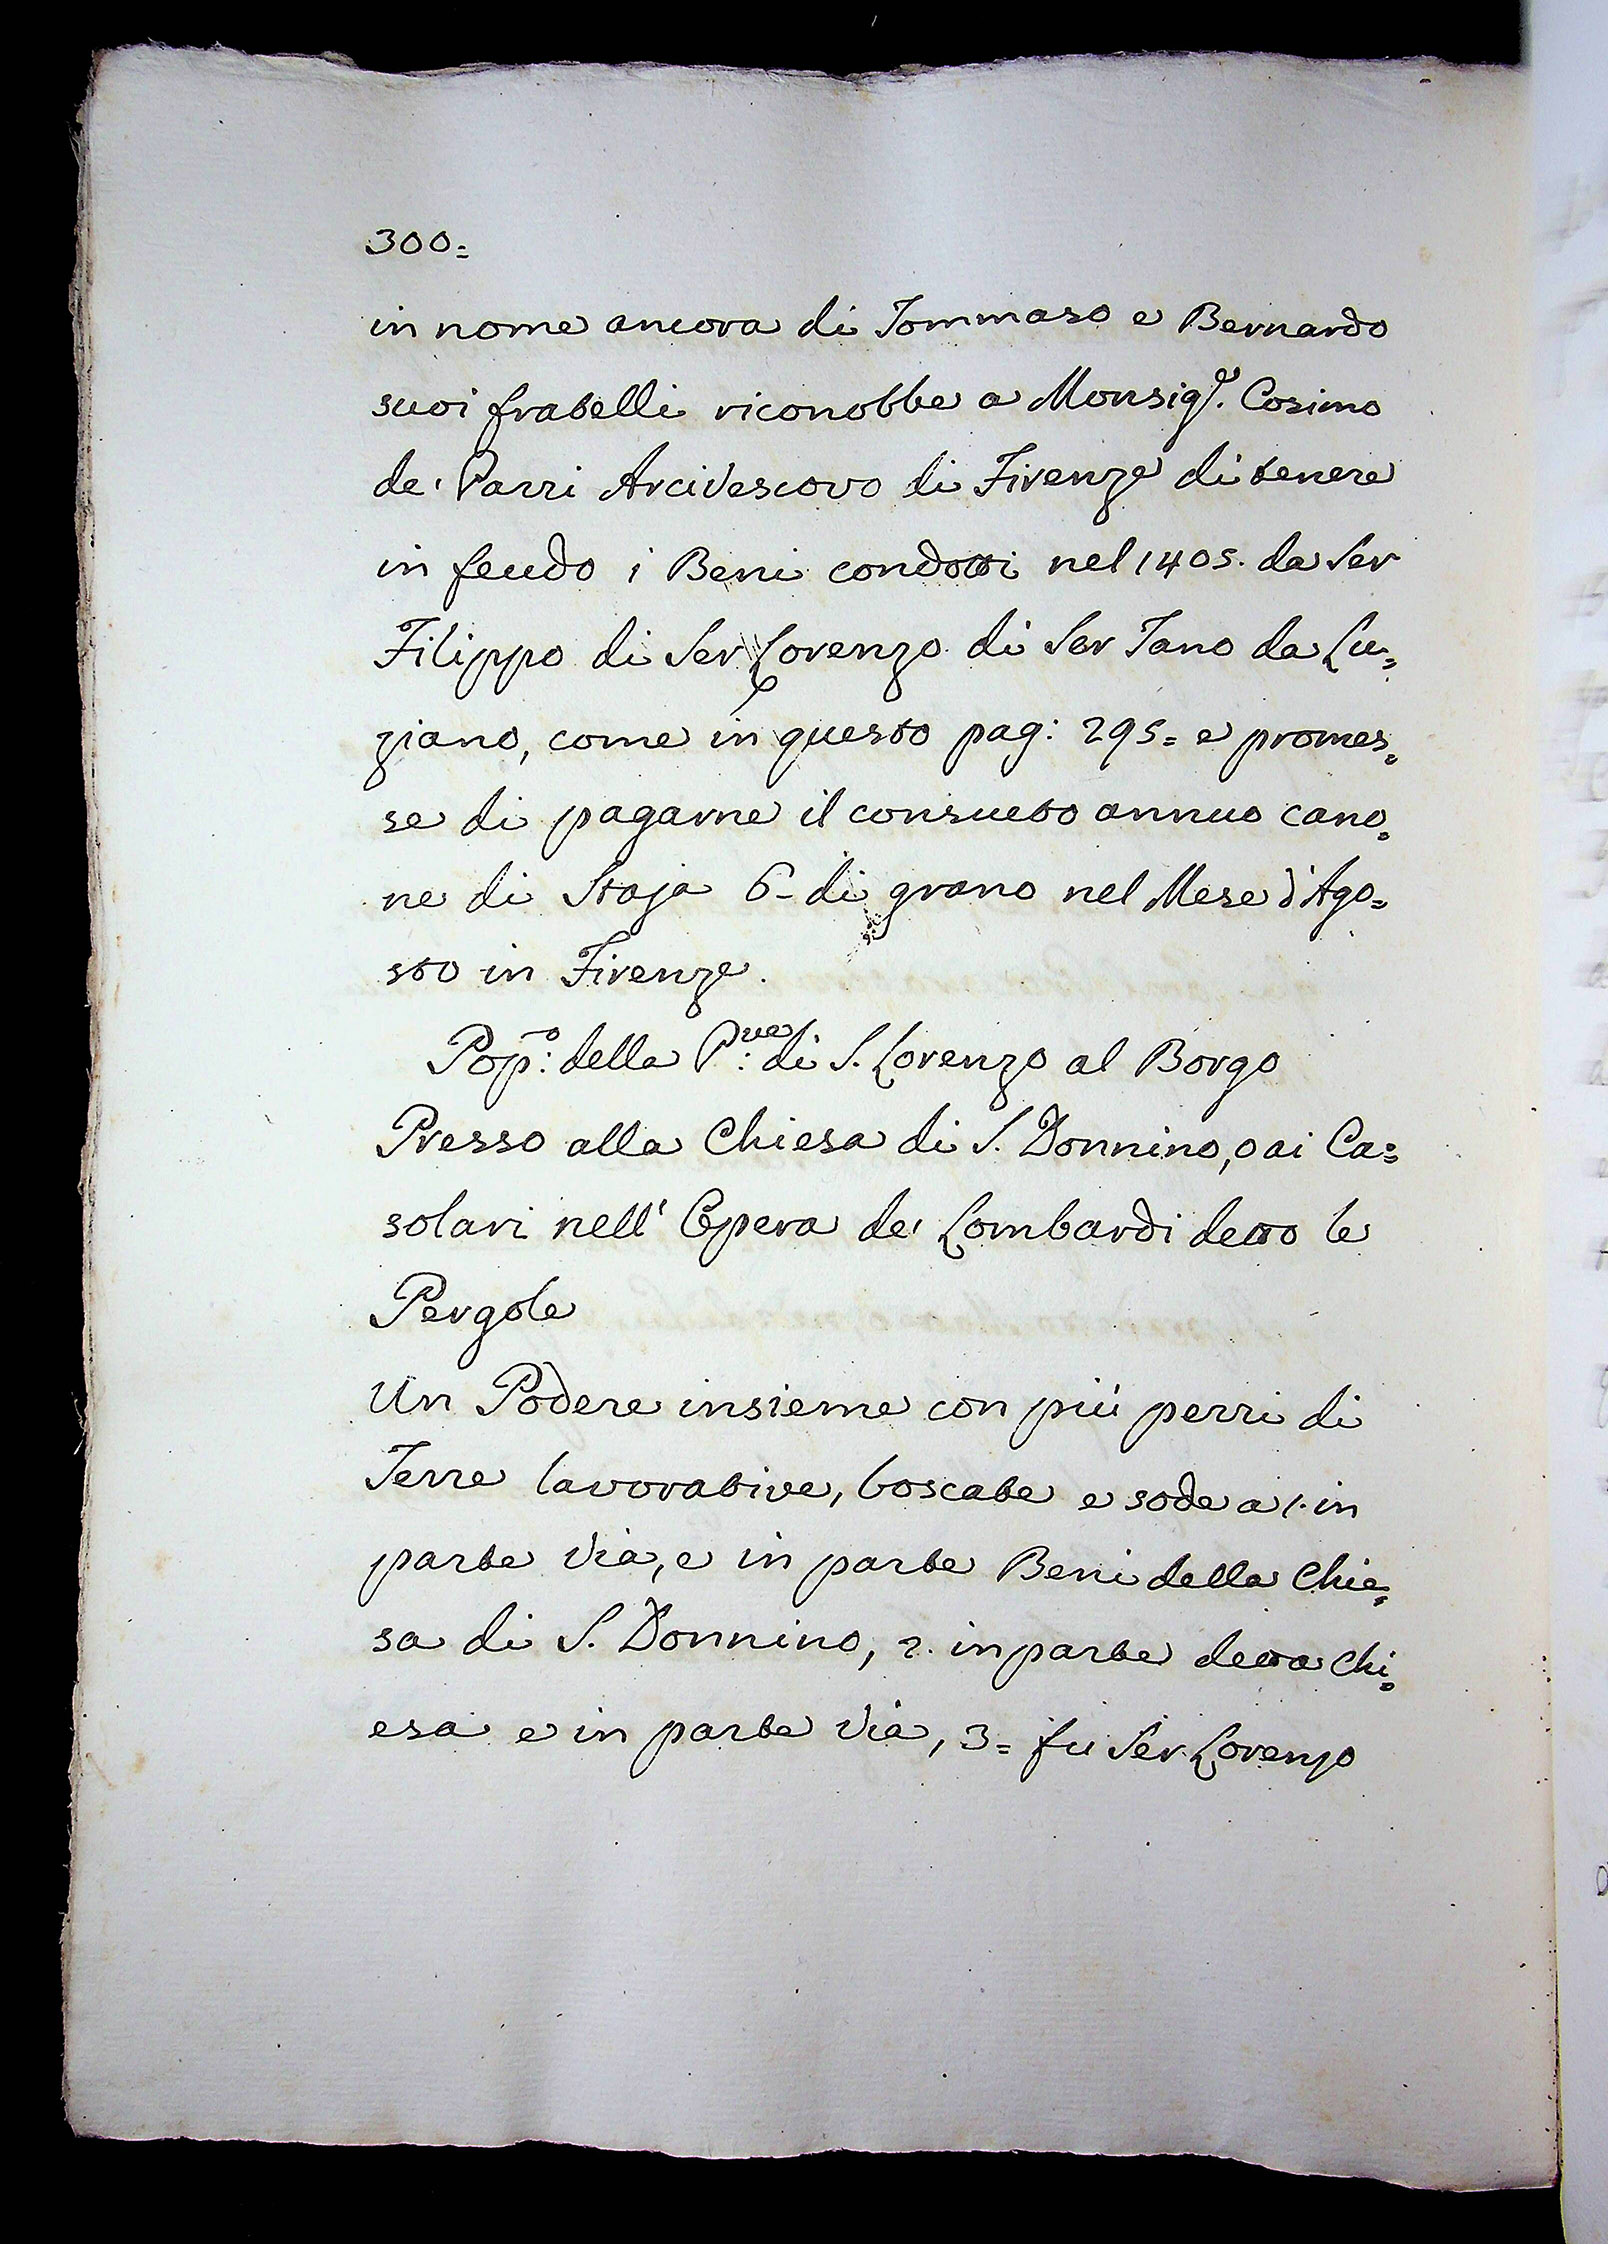 300=
in nome ancora di Tommaso e Bernardo
suoi fratelli riconobbe a Monsig.r Cosimo
de' Pazzi Arcivescovo di Firenze di tenere
in feudo i Beni condotti nel 1405. da Ser
Filippo di Ser Lorenzo di Ser Tano da Lu=
ziano, come in questo pag: 295= e promes=
se di pagarne il consueto annuo cano=
ne di Staja 6- di grano nel Mese d'Ago=
sto in Firenze.
Pop:o della P:ve di S. Lorenzo al Borgo
Presso alla Chiesa di S. Donnino, o ai Ca=
solari nell' Opera de' Lombardi detto le
Pergole
Un Podere insieme con più pezzi di
Terre lavorative, boscate e sode a 1. in
parte via, e in parte Beni della Chie=
sa di S. Donnino, 2. in parte detta Chi=
esa e in parte via, 3= fu Ser Lorenzo